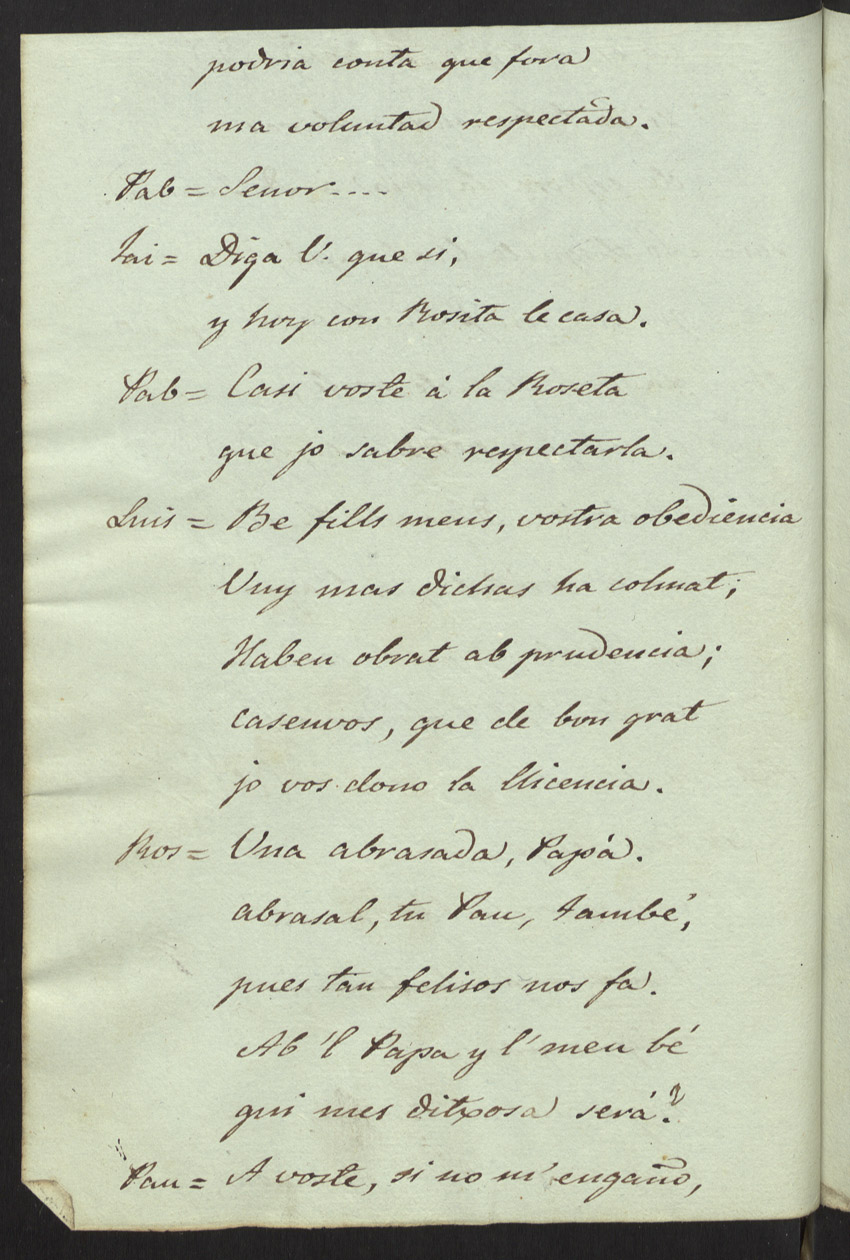 podria conta que fora
ma voluntad respectada.
Pab = Senor....
Jai = Diga V. que si,
y hoy con Rosita le casa.
Pab = Casi voste á la Roseta
que jo sabre respectarla.
Luis = Be fills meus, vostra obediencia
Vuy mas dichas ha colmat;
Habeu obrat ab prudencia;
casenvos, que de bon grat
jo vos dono la llicencia.
Ros = Una abrasada, Papá.
abrasal, tu Pau, també,
pues tan felisos nos fa.
Ab 'l Papa y l' meu bé
qui mes ditxosa será?
Pau = A voste, si no m' engaño,